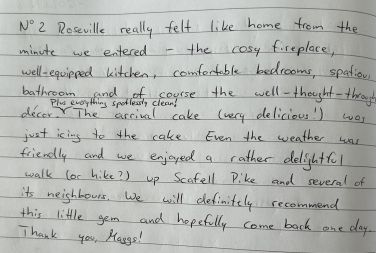 N° 2 Roseville really felt like home from the
minute we entered - the cosy fireplace,
well-equipped kitchen, comfortable bedrooms, spatious
bathroom and of course the well-thought-through
Plus everything spotlessly clean!
décor. The arrival cake (very delicious!) was
just icing to the cake. Even the weather was
friendly and we enjoyed a rather delightful
walk (or hike?) up Scafell Pike and several of
its neighbours. We will definitely recommend
this little gem and hopefully come back one day.
Thank you, Maggs!